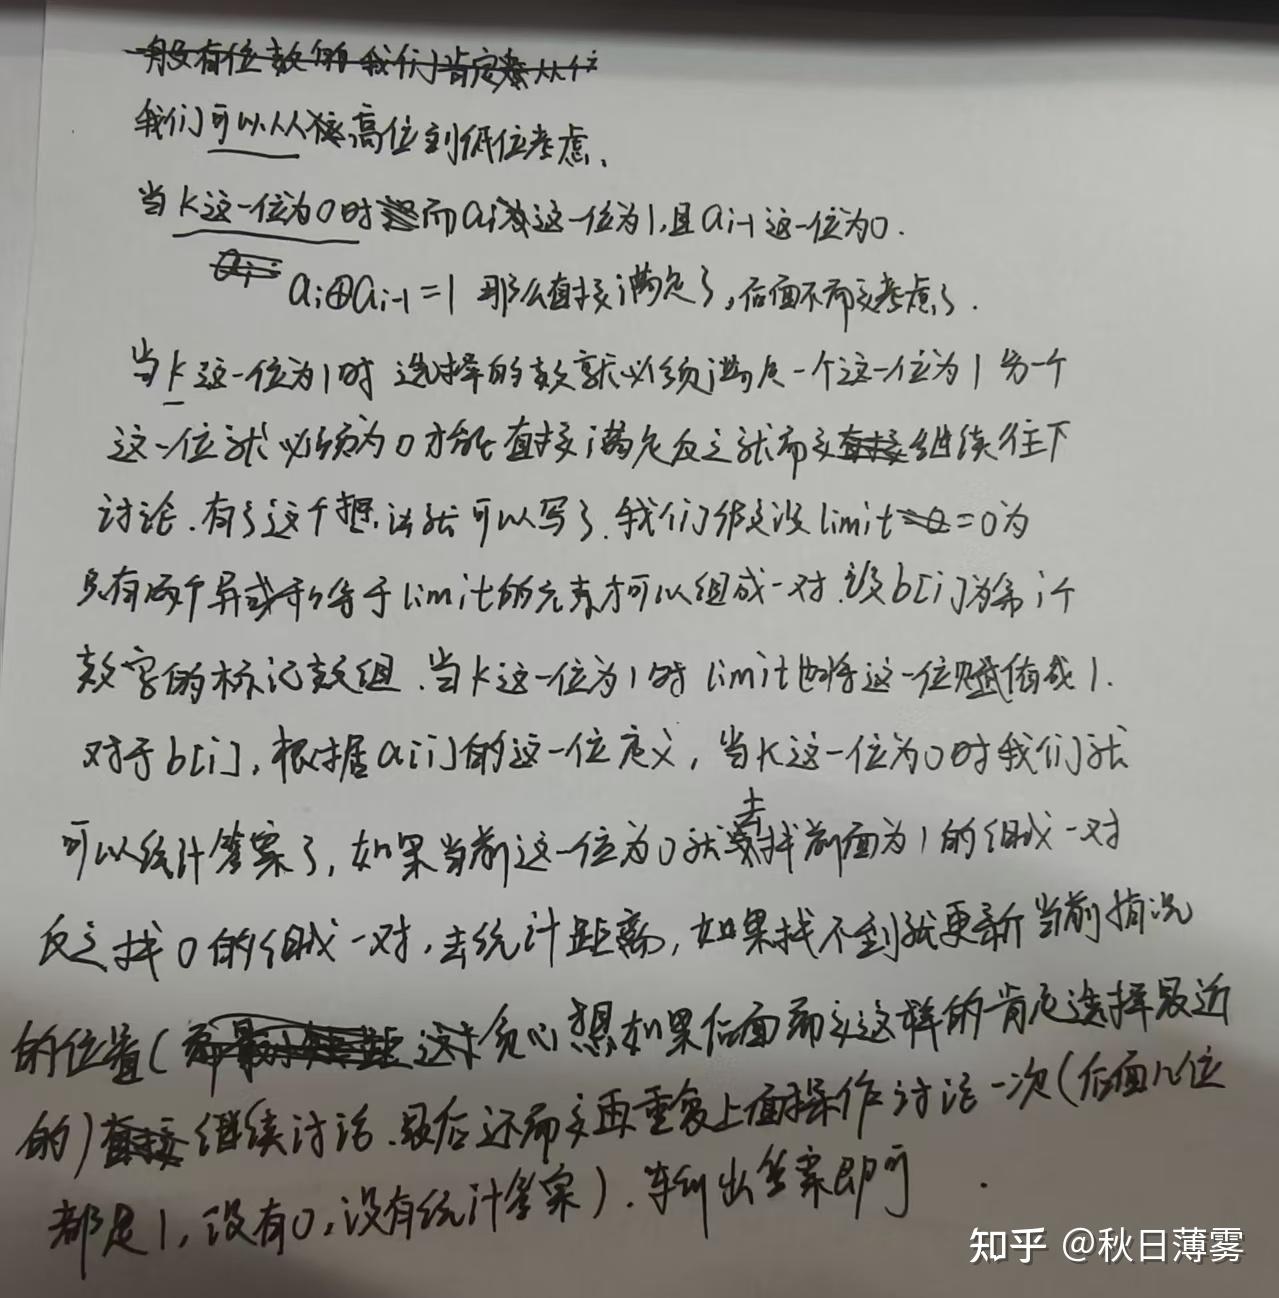 一般有位数的我们肯定考从位
我们可以从从高位到低位考虑、
当k这一位为0时 而ai这一位为1,且ai-1这一位为0.
ai⊕ai-1=1 那么直接满足了,后面不需要考虑了.
当k这一位为1时 选择的数就必须满足一个这一位为1 另一个
这一位就必须为0才能直接满足反之就需要直接继续往下
讨论.有了这个想法就可以写了.我们假设设limit=0为
只有两个异或和等于limit的元素才可以组成一对.设b[i]为第i个
数字的标记数组.当k这一位为1时limit也将这一位赋值成1.
对于b[i],根据a[i]的这一位定义,当k这一位为0时我们就
可以统计答案了,如果当前这一位为0就去找前面为1的组成一对
反之找0的组成一对,去统计距离,如果找不到就更新当前情况
的位置(贪心想如果后面需要这样的肯定选择最近
的)直接继续讨论.最后还需要再重复上面操作讨论一次(后面几位
都是1,没有0,没有统计答案).输出答案即可.
知乎 @秋日薄雾